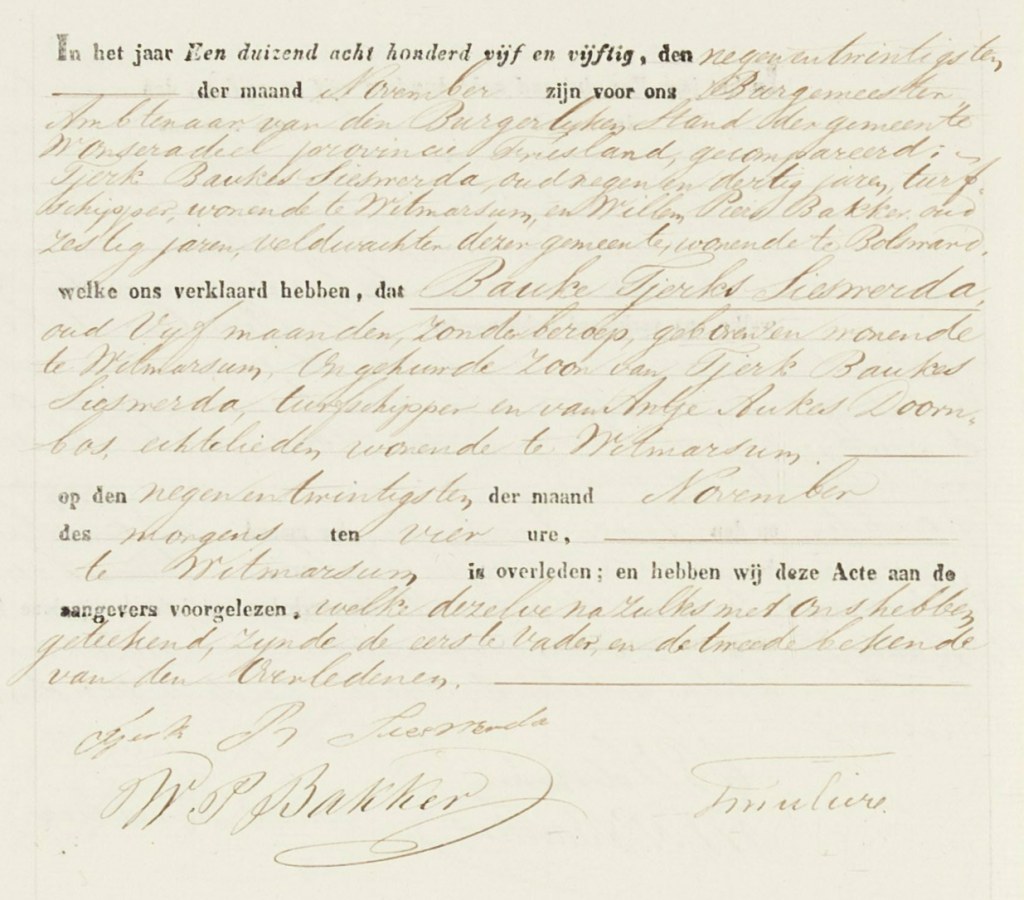 In het jaar Een duizend acht honderd vijf en vijftig, den negenentwintigsten
der maand November zijn voor ons Burgemeester,
Ambtenaar van den Burgerlijken Stand der gemeente
Wonseradeel provincie Friesland, gecompareerd:
Tjerk Baukes Sieswerda, oud negen en dertig jaren, turf-
schipper, wonende te Witmarsum, en Willem Piers Bakker oud
zestig jaren, veldwachter dezer gemeente, wonende te Bolsward,
welke ons verklaard hebben, dat Bauke Tjerks Sieswerda,
oud Vijf maanden, zonder beroep, geboren en wonende
te Witmarsum, Ongehuwde zoon van Tjerk Baukes
Sieswerda, turfschipper en van Antje Aukes Doorn-
bos, echtelieden, wonende te Witmarsum.
op den negenentwintigsten der maand November
des morgens ten vier ure,
te Witmarsum is overleden; en hebben wij deze Acte aan de
aangevers voorgelezen, welke dezelve na zulks met ons hebben
geteekend, zynde de eerste Vader, en de tweede bekende
van den Overledenen.
Tjerk B Sieswerda
W. P Bakker